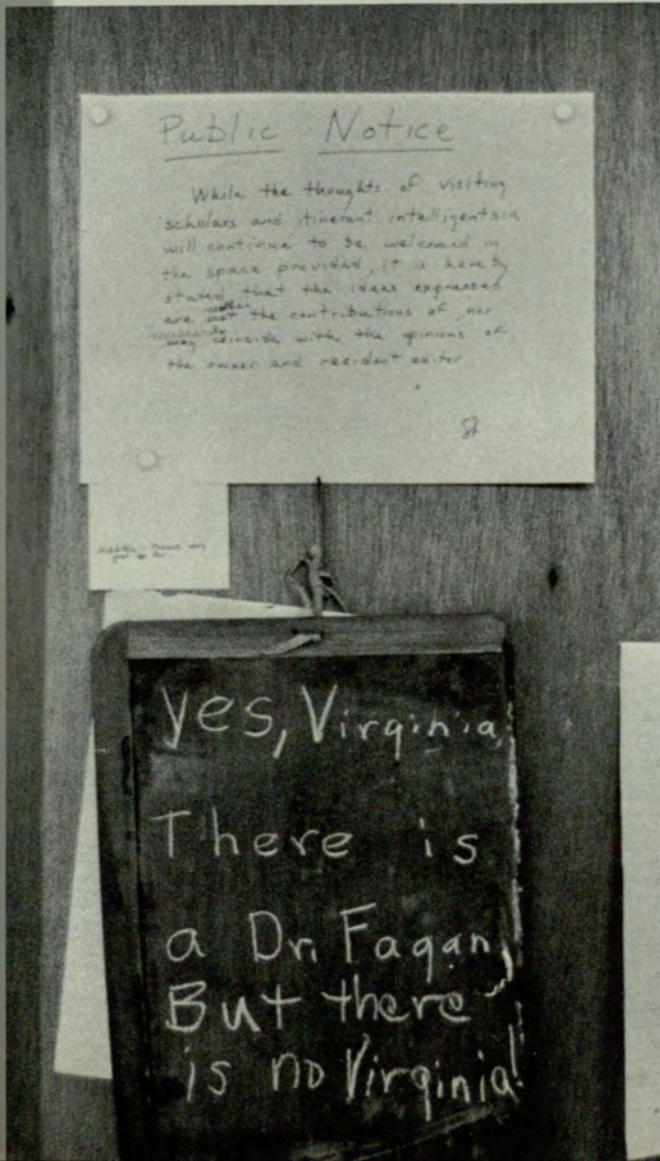 Public Notice
While the thoughts of visiting
scholars and itinerant intelligentsia
will continue to be welcomed in
the space provided, it is hereby
stated that the ideas expressed
neither
are not the contributions of nor
necessarily
may coincide with the opinions of
the owner and resident editor
yes, Virginia,
There is
a Dr. Fagan,
But there
is no Virginia!